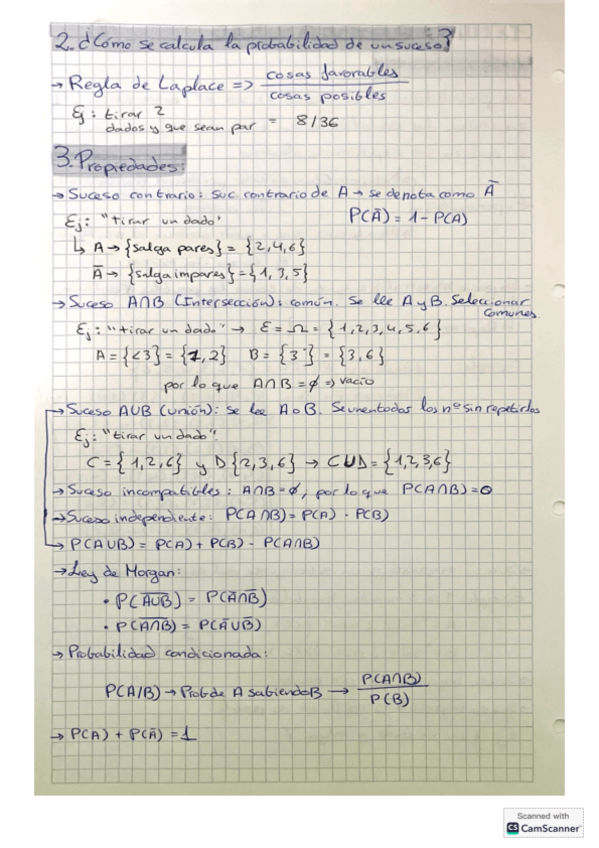 2. ¿Cómo se calcula la probabilidad de un suceso?
→ Regla de Laplace => cosas favorables / cosas posibles
Ej: tirar 2 dados y que sean par = 8/36
3. Propiedades:
→ Suceso contrario: suc contrario de A → se denota como A̅
Ej: "tirar un dado" P(A̅) = 1 - P(A)
↳ A → {salga pares} = {2,4,6}
A̅ → {salga impares} = {1,3,5}
→ Suceso A∩B (Intersección): común. Se lee A y B. Seleccionar comunes.
Ej: "tirar un dado" → E = Ω = {1,2,3,4,5,6}
A = {<3} = {1,2} B = {3̇} = {3,6}
por lo que A∩B = ∅ => vacío
→ Suceso A∪B (unión): se lee A o B. Se unen todos los nº sin repetirlos
Ej: "tirar un dado"
C = {1,2,6} y D {2,3,6} → C∪D = {1,2,3,6}
→ Suceso incompatibles: A∩B = ∅, por lo que P(A∩B) = 0
→ Suceso independiente: P(A∩B) = P(A) · P(B)
→ P(A∪B) = P(A) + P(B) - P(A∩B)
→ Ley de Morgan:
• P(A̅∪̅B̅) = P(A̅∩B̅)
• P(A̅∩̅B̅) = P(A̅∪B̅)
→ Probabilidad condicionada:
P(A/B) → Prob de A sabiendo B → P(A∩B) / P(B)
→ P(A) + P(A̅) = 1
Scanned with
CS CamScanner